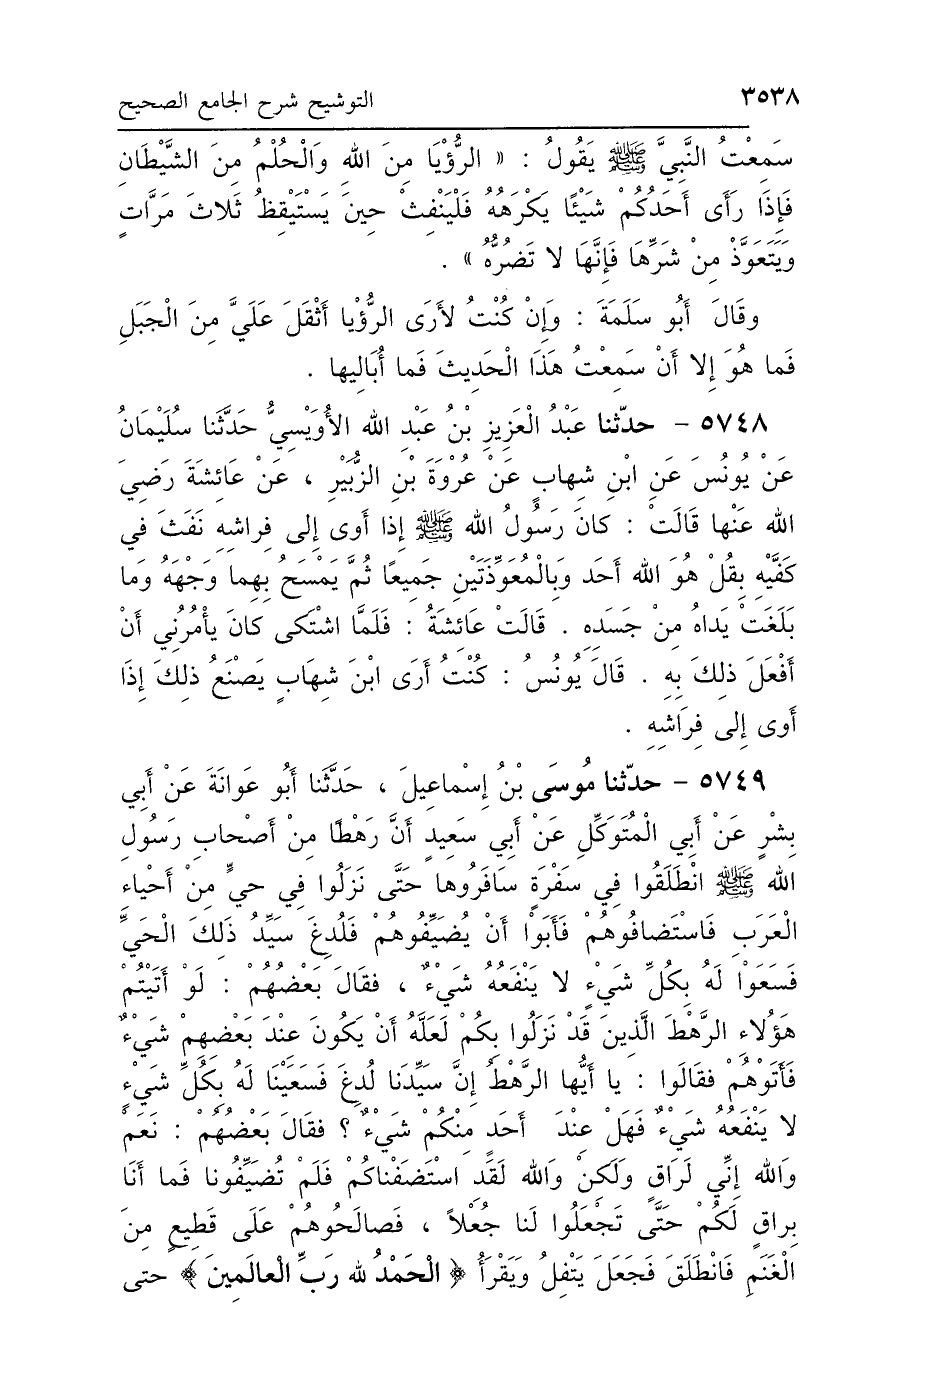 ٣٥٣٨ التوشيح شرح الجامع الصحيح
سَمِعْتُ النَّبِيَّ ﷺ يَقُولُ : « الرُّؤْيَا مِنَ اللهِ وَالْحُلْمُ مِنَ الشَّيْطَانِ
فَإِذَا رَأَى أَحَدُكُمْ شَيْئًا يَكْرَهُهُ فَلْيَنْفِثْ حِينَ يَسْتَيْقِظُ ثَلاثَ مَرَّاتٍ
وَيَتَعَوَّذْ مِنْ شَرِّهَا فَإِنَّهَا لا تَضُرُّهُ » .
وقَالَ أَبُو سَلَمَةَ : وَإِنْ كُنْتُ لأَرَى الرُّؤْيا أَثْقَلَ عَلَيَّ مِنَ الْجَبَلِ
فَما هُوَ إِلا أَنْ سَمِعْتُ هَذَا الْحَدِيثَ فَما أُبَالِيها .
٥٧٤٨ - حدّثنا عَبْدُ الْعَزِيزِ بْنُ عَبْدِ اللهِ الأُوَيْسِيُّ حَدَّثَنا سُلَيْمَانُ
عَنْ يُونُسَ عَنِ ابْنِ شِهابٍ عَنْ عُرْوَةَ بْنِ الزُّبَيْرِ ، عَنْ عَائِشَةَ رَضِيَ
اللهُ عَنْها قَالَتْ : كانَ رَسُولُ اللهِ ﷺ إِذا أَوى إِلى فِراشِهِ نَفَثَ في
كَفَّيْهِ بِقُلْ هُوَ اللهُ أَحَد وَبِالْمُعَوِّذَتَيْنِ جَمِيعًا ثُمَّ يَمْسَحُ بِهِما وَجْهَهُ وَما
بَلَغَتْ يَداهُ مِنْ جَسَدِهِ . قَالَتْ عائِشَةُ : فَلَمَّا اشْتَكى كانَ يَأْمُرُنِي أَنْ
أَفْعَلَ ذلِكَ بِهِ . قَالَ يُونُسُ : كُنْتُ أَرَى ابْنَ شِهَابٍ يَصْنَعُ ذلِكَ إِذَا
أَوى إِلى فِرَاشِهِ .
٥٧٤٩ - حدّثنا مُوسَى بْنُ إِسْماعِيلَ ، حَدَّثَنا أَبُو عَوانَةَ عَنْ أَبي
بِشْرٍ عَنْ أَبِي الْمُتَوَكِّلِ عَنْ أَبي سَعِيدٍ أَنَّ رَهْطًا مِنْ أَصْحابِ رَسُولِ
اللهِ ﷺ انْطَلَقُوا فِي سَفْرَةٍ سافَرُوها حَتَّى نَزَلُوا فِي حيٍّ مِنْ أَحْياءِ
الْعَرَبِ فَاسْتَضافُوهُمْ فَأَبَوْا أَنْ يُضَيِّفُوهُمْ فَلُدِغَ سَيِّدُ ذَلِكَ الْحَيِّ
فَسَعَوْا لَهُ بِكُلِّ شَيْءٍ لا يَنْفَعُهُ شَيْءٌ ، فقَالَ بَعْضُهُمْ : لَوْ أَتَيْتُمْ
هَؤُلاءِ الرَّهْطَ الَّذِينَ قَدْ نَزَلُوا بِكُمْ لَعَلَّهُ أَنْ يَكُونَ عِنْدَ بَعْضِهِمْ شَيْءٌ
فَأَتَوْهُمْ فقَالُوا : يا أَيُّها الرَّهْطُ إِنَّ سَيِّدَنا لُدِغَ فَسَعَيْنَا لَهُ بِكُلِّ شَيْءٍ
لا يَنْفَعُهُ شَيْءٌ فَهَلْ عِنْدَ أَحَدٍ مِنْكُمْ شَيْءٌ ؟ فقَالَ بَعْضُهُمْ : نَعَمْ
وَاللهِ إِنِّي لَرَاقٍ وَلَكِنْ وَاللهِ لَقَدِ اسْتَضَفْناكُمْ فَلَمْ تُضَيِّفُونا فَما أَنَا
بِراقٍ لَكُمْ حَتَّى تَجْعَلُوا لَنا جُعْلاً ، فَصالَحُوهُمْ عَلَى قَطِيعٍ مِنَ
الْغَنَمِ فَانْطَلَقَ فَجَعَلَ يَتْفِلُ وَيَقْرَأُ ﴿ الْحَمْدُ لله رَبِّ الْعالَمِينَ ﴾ حتى